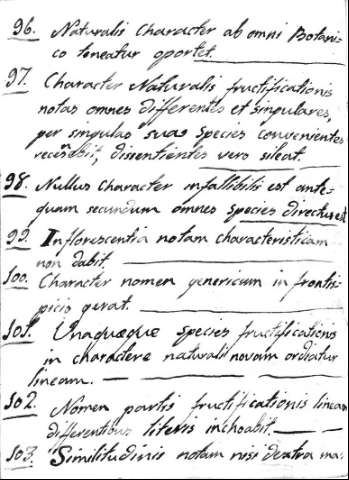 96. Naturalis Character ab omni Botani-
co teneatur oportet.
97. Character Naturalis fructificationis
notas omnes differentes et singulares,
per singulas suas species convenientes
recensebit, dissentientes vero sileat.
98. Nullus Character infallibilis est ante-
quam secundum omnes species directus est
99. Inflorescentia notam characteristicam
non dabit.
100. Character nomen genericum in frontis-
picio gerat.
101. Unaquæque species fructificationis
in charactere naturali novam ordiatur
lineam.
102. Nomen partis fructificationis lineam
differentibus literis inchoabit.
103. Similitudinis notam nisi dextra ma-